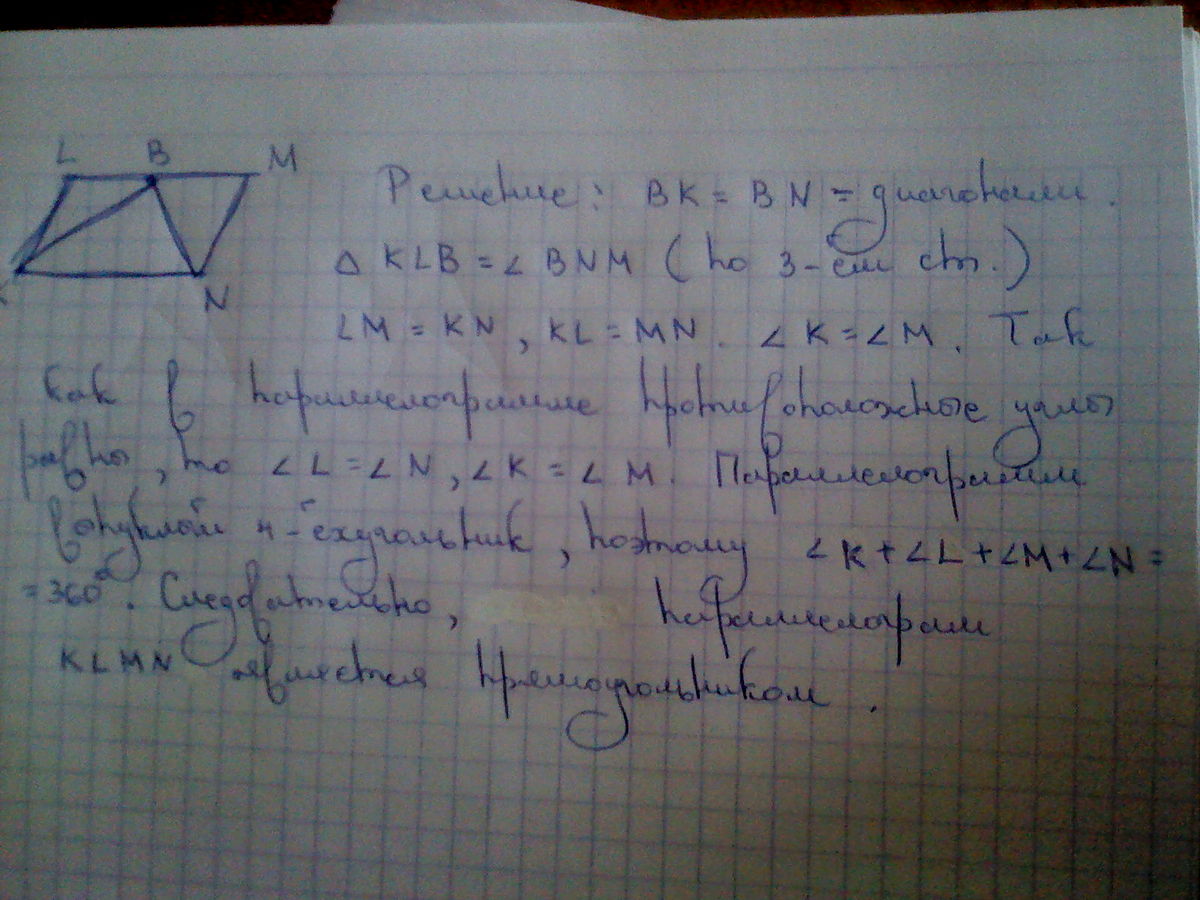 L B M
Решение: BK = BN = диагонали.
Δ KLB = ∠ BNM (по 3-ём ст.)
K N
LM = KN, KL = MN. ∠K = ∠M. Так
как в параллелограмме противоположные углы
равны, то ∠L = ∠N, ∠K = ∠M. Параллелограмм
выпуклый 4-ёхугольник, поэтому ∠K + ∠L + ∠M + ∠N =
= 360°. Следовательно, параллелограм
KLMN является прямоугольником.